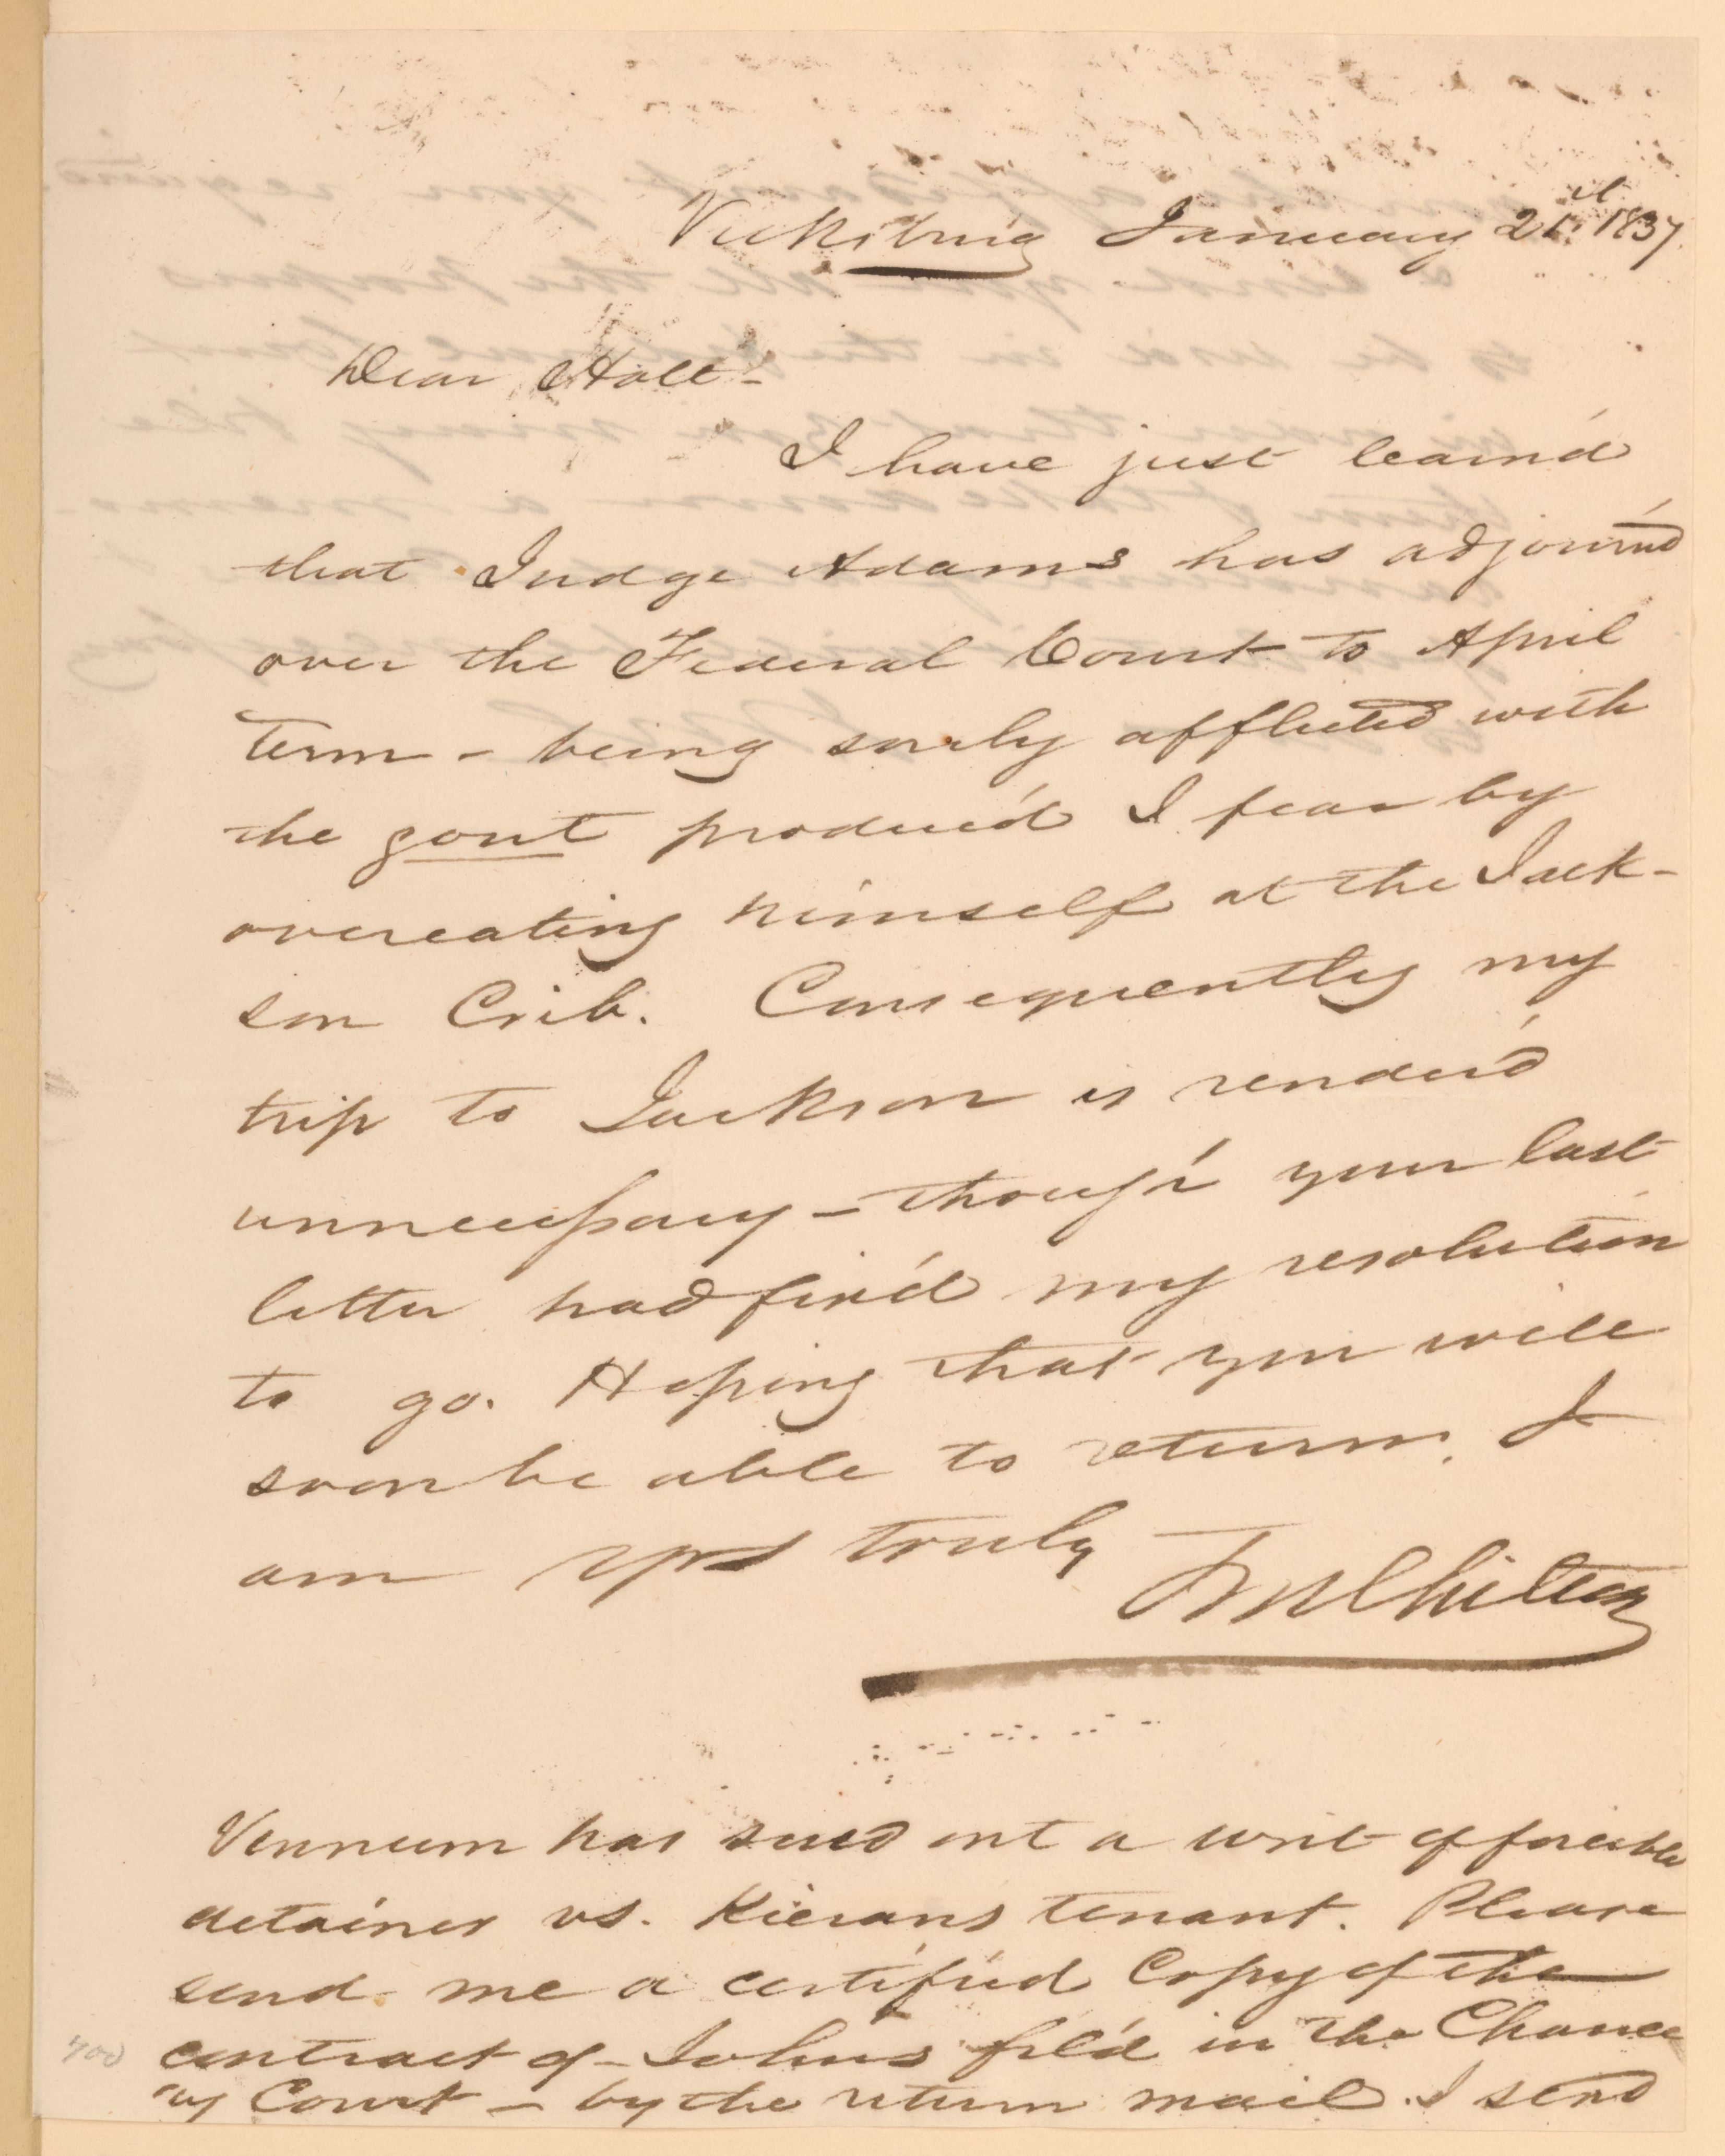 Vicksburg January 21st 1837.
Dear Holt -
I have just learn'd
that Judge Adams has adjourn'd
over the Federal Court to April
term - being sorely afflicted with
the gout produc'd I fear by
overeating himself at the Jack-
son Crib. Consequently my
trip to Jackson is render'd
unnecessary - though your last
letter had fix'd my resolution
to go. Hoping that you will
soon be able to return, I
am yrs truly
Vennum has sued out a writ of forcible
detainer vs. Kierans tenant. Please
send me a certified Copy of the
contract of Johns fil'd in the Chance
ry Court - by the return mail. I send
700